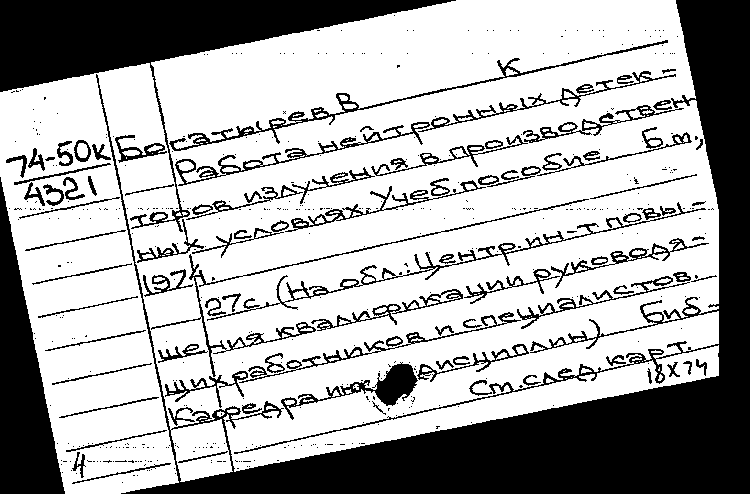 К
74-50к Богатырев, В
4321 Работа нейтронных детек-
торов излучения в производствен
ных условиях. Учеб. пособие. Б.м.,
1974.
27с. (На обл.: Центр. ин-т повы-
шения квалификации руководя-
щих работников и специалистов.
Кафедра инж дисциплин) Биб-
Ст. след. карт.
18X74
4